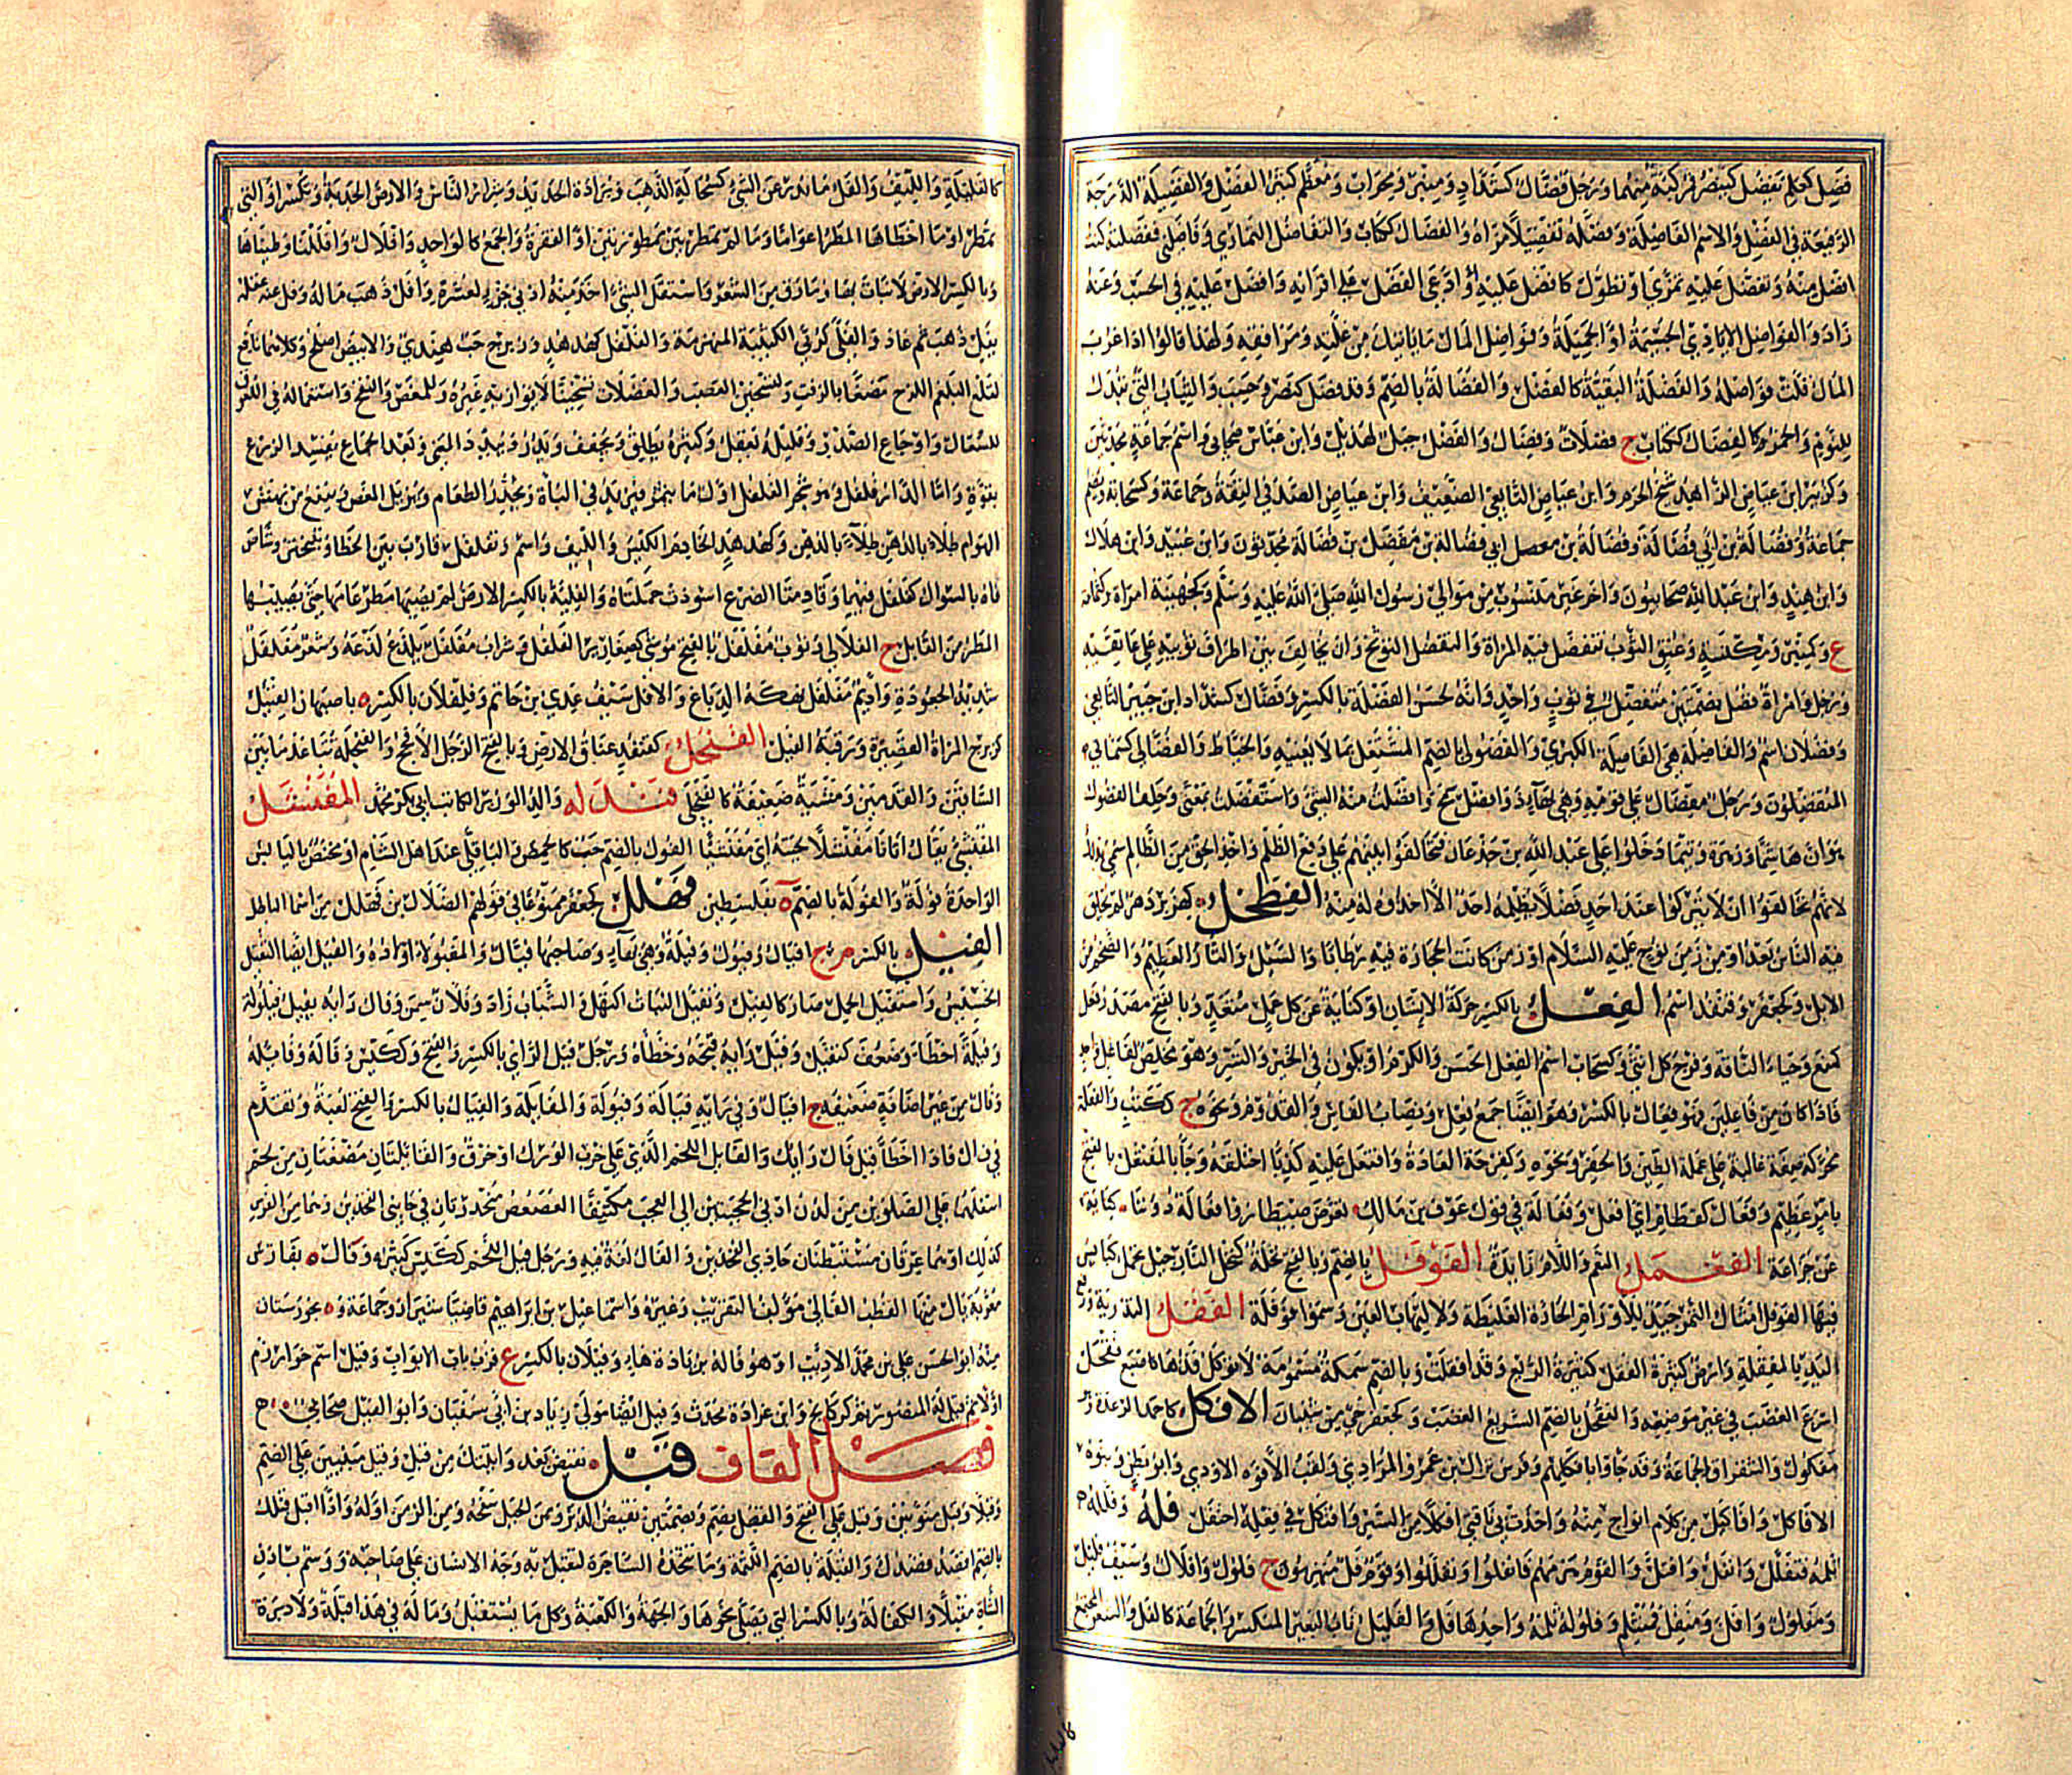 فضل كعلم يفضل كينصر مركبة منهما ورجل فضال كشداد ومنبر ومحراب ومعظم كثير الفضل والفضيلة الدرجة
الرفيعة في الفضل والاسم الفاضلة وفضله تفضيلا مزاه والفضال ككتاب والتفاضل التمازي وفاضلني ففضلته كنت
افضل منه وتفضل عليه تمزى او تطول كافضل عليه او ادعى الفضل على اقرانه وافضل عليه في الحسب وعنه
زاد والفواضل الايادي الجسيمة او الجميلة وفواضل المال ما ياتيك من غلته ومرافقه ولهذا قالوا اذا عزب
المال قلت فواضله والفضلة البقية كالفضل والفضالة بالضم وقد فضل كنصر وحسب والثياب التي تبتذل
للنوم والخمر كالفضال ككتاب ج فضلات وفضال والفضل جبل لهذيل وابن عباس صحابي واسم جماعة محدثين
وكزبير ابن عياض الزاهد شيخ الحرم وابن عياض التابعي الضعيف وابن عياض الصدفي الثقة وجماعة وكسحابة ويضم
جماعة وفضالة بن ابي فضالة وفضالة بن مفضل بن فضالة محدثون وابن عبيد وابن هلال
وابن هند وابن عبد الله صحابيون واخر غير منسوب من موالي رسول الله صلى الله عليه وسلم وكجهينة امراة وكثمامة
ع وكمنبر ومكنسة وعنق الثوب تتفضل فيه المراة والتفضل التوشح وان يخالف بين اطراف ثوبيه على عاتقيه
ورجل وامراة فضل بضمتين متفضل في ثوب واحد وانه لحسن الفضلة بالكسر وفضال كشداد ابن جبير التابعي
وفضلان اسم والفاضلة هي الفاصلة الكبرى والفضولي بالضم المشتغل بما لا يعنيه والخياط والفضالي كثمالي
المتفضلون ورجل مفضال على قومه وهي بهاء ذو افضل سمح وافضلت منه الشئ واستفضلت بمعنى وحلف الفضول
هو ان هاشما وزهرة وتيما دخلوا على عبد الله بن جدعان فتحالفوا بينهم على دفع الظلم واخذ الحق من الظالم سمي بذلك
لانهم تحالفوا ان لا يتركوا عند احد فضلا يظلمه احدا الا اخذوه له منه الفطحل كهزبر دهر لم يخلق
فيه الناس بعد او من زمن نوح عليه السلام او زمن كانت الحجارة فيه رطابا والسيل والتار العظيم والضخم من
الابل وكجعفر وقنفذ اسم الفعل بالكسر حركة الانسان او كناية عن كل عمل متعد وبالفتح مصدر فعل
كمنع وحياء الناقة وفرج كل انثى وكسحاب اسم الفعل الحسن والكرم او يكون في الخير والشر وهو مخلص لفاعل واحد
فاذا كان من فاعلين فهو فعال بالكسر وهو ايضا جمع فعل ونصاب الفاس والقدوم ونحوه ج ككتب والفعلة
محركة صفة غالبة على عملة الطين والحفر ونحوه وكفرحة العادة وافتعل عليه كذبا اختلقه وجاء بالمفتعل بالفتح
بامر عظيم وفعال كقطام اي افعل وفعالة في قول عوف بن مالك تعرض ضيطارو فعالة دوننا كناية
عن خزاعة الفعمل النعم واللام زايدة الفوفل بالضم وبالفتح نخلة كنخل النارجيل تحمل كبايس
فيها الفوفل امثال التمر جيد لاورام الحارة الغليظة ولالتهاب العين وسموا فوفلة الففل التذرية ورفع
اليد بالمقفلة وارض كثيرة القفل كثيرة الريع وقد افقلت وبالضم سمكة مسمومة لا تؤكل قدها كاصبع فقحل
اسرع الغضب في غير موضعه والفقحل بالضم السريع الغضب وكجعفر حي من شيبان الافكل كاحمد الرعدة
مفكول والشقراق والجماعة وقد جاؤا بافكلهم وفرس نزال بن عمرو المرادي ولقب الافوه الاودي وابو بطن وبنوه
الافاكل وافاكل من كلام افواج منه واخذت بي ناقتي افكلا من السير وافتكل في فعله احتفل فله وفلله
ثلمه فتفلل وانفل وافتل والقوم هزمهم فانفلوا وتفللوا وقوم فل منهزمون ج فلول وافلال وسيف فليل
ومفلول وافل ومنفل منثلم وفلوله ثلمه واحدها فل والفليل ناب البعير المنكسر والجماعة كالفل والشعر المجتمع
كالفليلة والليف والفل ما ندر عن الشئ كسحالة الذهب وبرادة الحديد وشرار النار والارض الجدبة وتكسر او التي
تمطر او ما اخطاها المطر اعواما وما لم تمطر بين ممطورتين او القفرة والجمع كالواحد وافلال وافللنا وطيناها
وبالكسر الارض لا نبات بها وما رق من الشعر واستفل الشئ اخذ منه ادنى جزء لعشره وافل ذهب ماله وفل عنه عقله
يفل ذهب ثم عاد والفلى كربى الكتيبة المنهزمة والفلفل كهدهد وزبرج حب هندي والابيض اصلح وكلاهما نافع
لقلع البلغم اللزج مضغا بالزفت ولتسخين العصب والعضلات تسخينا لا يوازيه غيره وللمغص والنفخ واستعماله في اللعوق
للسعال واوجاع الصدر وقليله يعقل وكثيره يطلق ويجفف ويدر ويبدد المنى وبعد الجماع يفسد الزرع
بقوة واما الدار فلفل وهو شجر الفلفل اول ما يثمر فيزيد في الباة ويحدر الطعام ويزيل المغص وينفع من نهش
الهوام طلاء بالدهن وكهدهد الخادم الكيس والليف واسم وتفلفل قارب بين الخطا وتبختر وشاص
فاه بالسواك كفلفل فيهما وقادمتا الضرع اسودت حلمتاه والفلية بالكسر الارض لم يصبها مطر عامها حتى يصيبها
المطر من القابل ج الفلالي وثوب مفلفل بالفتح موشى كصغارير الفلفل وشراب مفلفل يلذع لذعه وشعر مفلفل
شديد الجعودة واديم مفلفل نهكه الدباغ والافل سيف عدي بن حاتم وفلفلان بالكسر ه باصبهان الفنئل
كزبرج المراة القصيرة ورقبة الفيل الفنجل كقنفذ عناق الارض وبالفتح الرجل الافحج والفنجلة تباعد ما بين
الساقين والقدمين ومشية ضعيفة كالفنجلى فندله والد الوزير الكاتب ابي بكر محمد المفنشل
المفنشئ يقال اتانا مفنشلا لحيته اي مفنشئا الفول بالضم حب كالحمص والباقلى عند اهل الشام او مختص باليابس
الواحدة فولة والفولة بالضم ه بفلسطين فهلل كجعفر ممنوعا في قولهم الضلال بن فهلل من اسماء الباطل
الفيل بالكسر م ج افيال وفيول وفيلة وهي بهاء وصاحبها فيال والمفيولاء اولاده والفيل ايضا الثقيل
الخسيس واستفيل الجمل صار كالفيل وتفيل النبات اكتهل والشباب زاد وفلان سمن وفال رايه يفيل فيلولة
وفيلة اخطا وضعف كتفيل وفيل رايه قبحه وخطاه ورجل فيل الراي بالكسر والفتح وككيس وفاله وفائله
وفال من غير اضافة ضعيفه ج افيال وفي رايه فيالة وفيولة والمفايلة والفيال بالكسر والفتح لعبة وتقدم
في ف ا ل فاذا اخطأ قيل فال رايك والفايل اللحم الذي على خرب الورك او عرق والفائلتان مضغتان من لحم
اسفلهما على الصلوين من لدن ادنى الحجبتين الى العجب مكتنفتا العصعص منحدرتان في جانبي الفخذين وهما من الفرس
كذلك او هما عرقان مستبطنان حاذي الفخذين والفال لغة فيه ورجل فيل اللحم ككيس كثيره وفال ه بفارس
معربة بال منها القطب الفالي مؤلف التقريب وغيره واسماعيل بن ابراهيم قاضيا شيراز وجماعة و ه بخوزستان
منها ابو الحسن علي بن محمد الاديب او هو فالة بزيادة هاء وفيلان بالكسر ع قرب باب الابواب وفيل اسم خوارزم
اولا ثم قيل لها المنصورة ثم كركانج وابن عرادة محدث وفيل ايضا مولى زياد بن ابي سفيان وابو الفيل صحابي
فصل القاف قبل نقيض بعد وابتك من قبل وقبل مبنيين على الضم
وقبلا وقبل منونين وقبل على الفتح والقبل بضم وبضمتين نقيض الدبر ومن الجبل سفحه ومن الزمن اوله واذا اقبل قبلك
بالضم اقصد قصدك والقبلة بالضم اللثمة وما تتخذه الساحرة لتقبل به وجه الانسان على صاحبه ووسم باذن
الشاة مقبلا والكفالة وبالكسر التي يصلى نحوها والجهة والكعبة وكل ما يستقبل وما له في هذا قبلة ولا دبرة